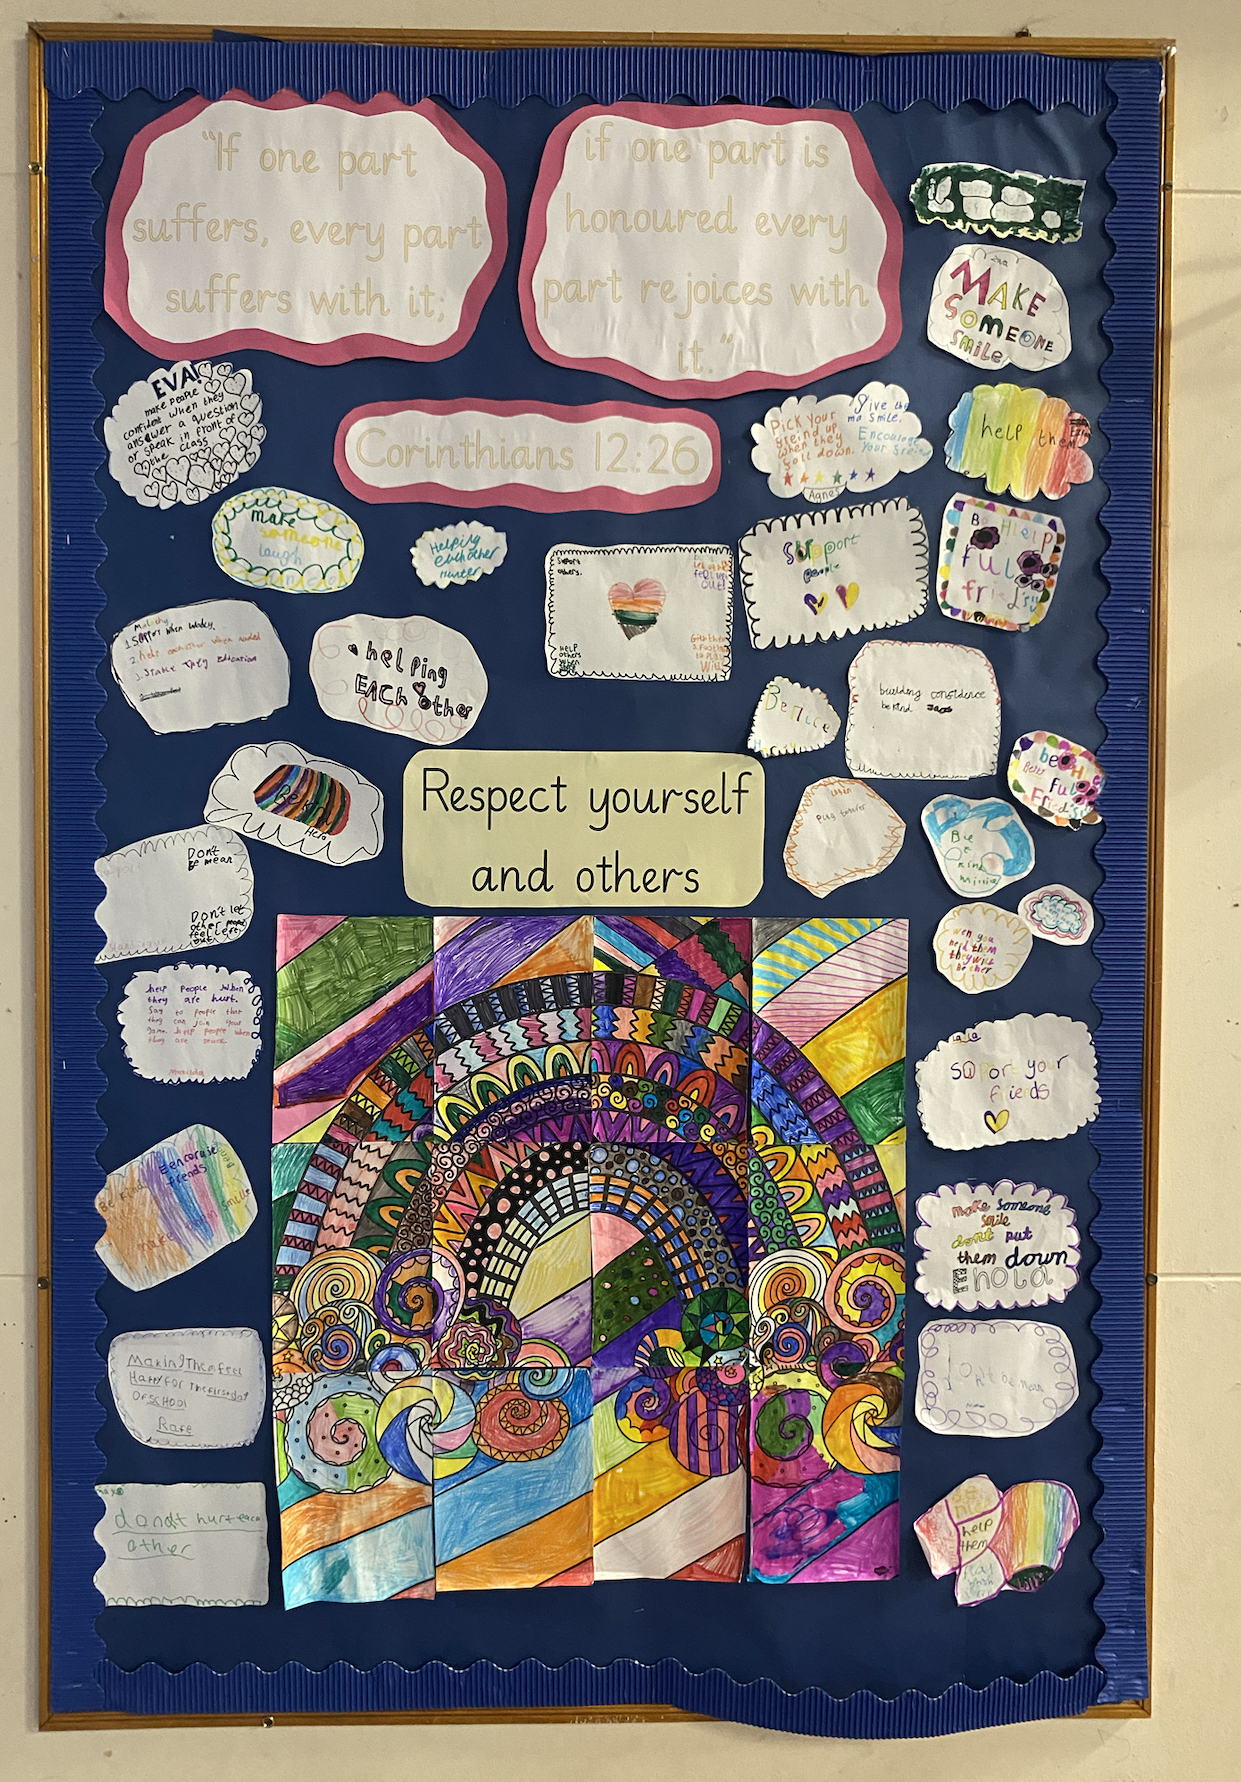 "If one part
suffers, every part
suffers with it;
if one part is
honoured every
part rejoices with
it."
Corinthians 12:26
MAKE
SOMEONE
SMiLe
EVA
make people
confident when they
answer a question
or speak in front of
the class
Pick your
freind up
when they
fall down.
Give them
a Smile.
Encourage
Your
Agnes
help them
make
someone
laugh
Helping
eachother
Hunter
Support
others.
HELP
others
When
Support
people
B HElp
fUL
1. Support when
2. help eachother when needed
3. Shake They Education
helping
EACh other
Be nice
building confidence
be kind
be H
fUL
Respect yourself
and others
Play together
Be
kind
millie
Be
Hero
Don't
Be mean
Don't let
other
feel left
out
wen you
need them
they will
be ther
help people when
they are hurt.
Say to people that
they can join your
game. help people when
they are stuck.
SUPort your
friends
Be kind
Encoruse
frends
smile
make someone
smile
dont put
them down
Enola
Making Them feel
Happy for The first day
OF SCHOOl
Rafe
Don't be mean
donat hurt each
other
help
them